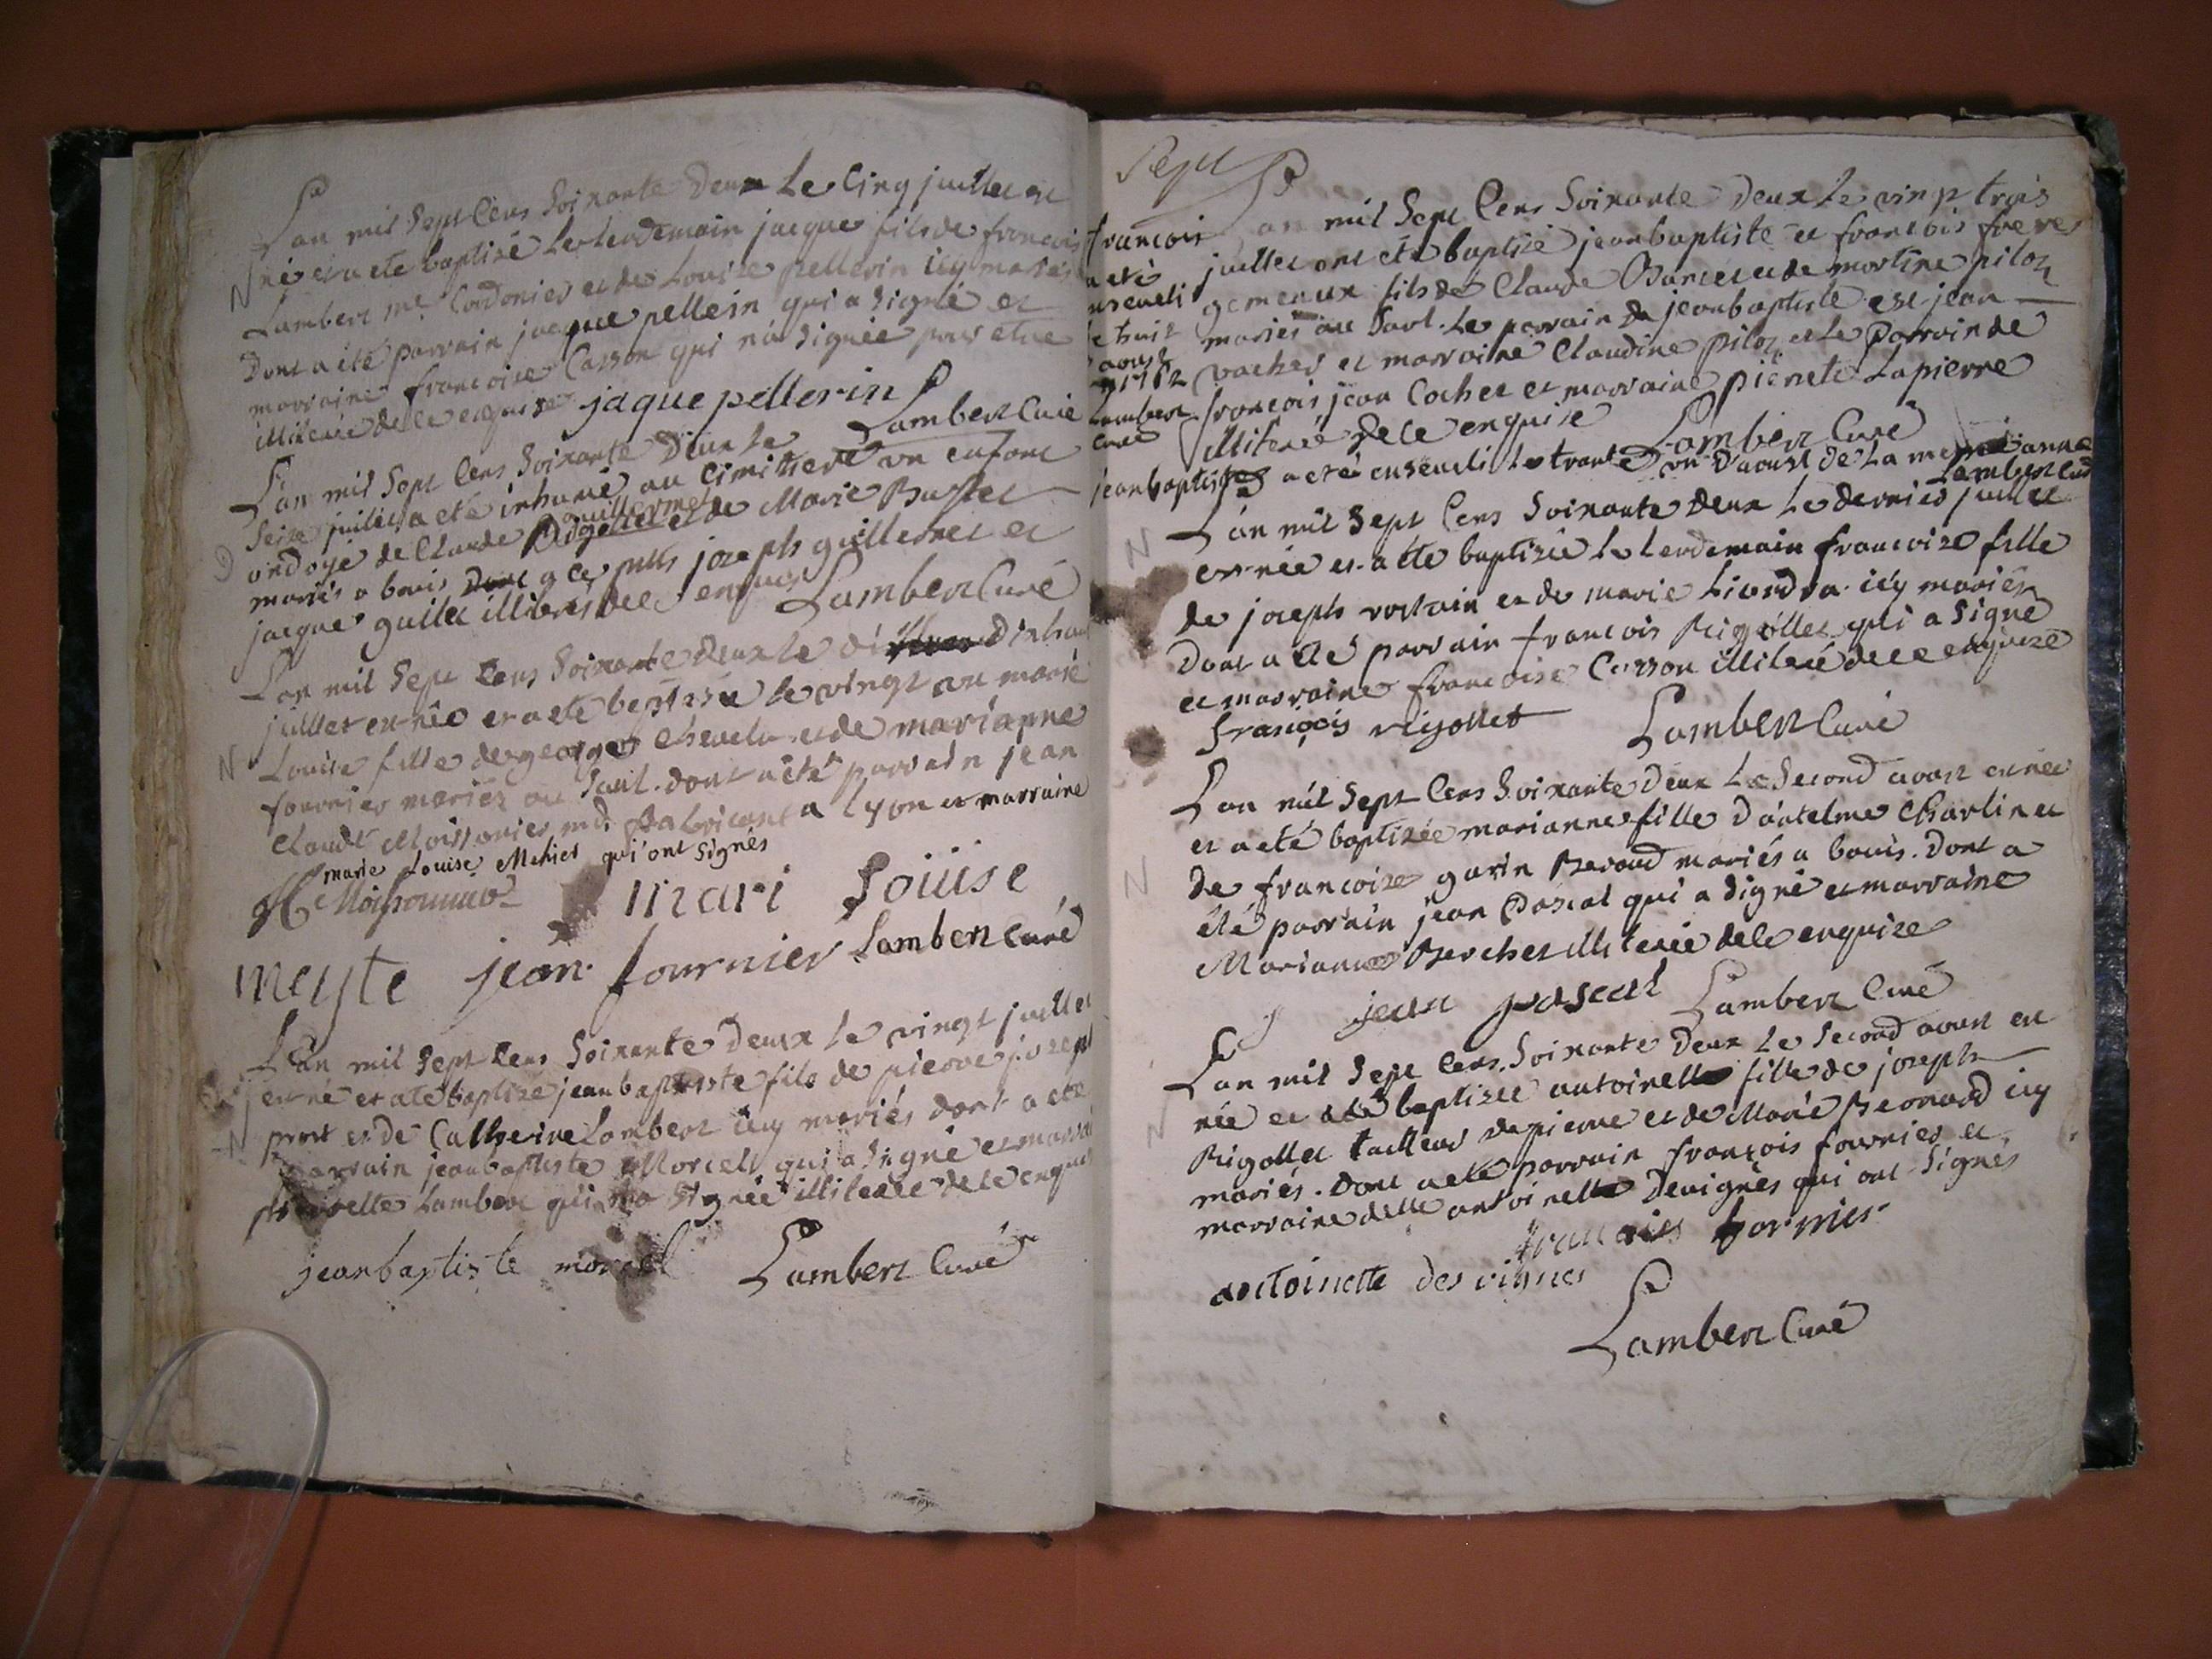 L'an mil Sept Cens Soixante Deux Le Cinq juillet est
né et a eté baptisé Le lendemain jacque fils de francois
N
Lambert me Cordonier et de Louise pellerin icy mariés
Dont a été parrain jacque pellerin qui a signé et
marraine francoise Casson qui n'a signée pour etre
illiterée de ce enquise jaque pellerin
Lambert Curé
L'an mil Sept Cens Soixante Deux Le
Seize juillet a eté inhumé au Cimittiere un enfant
guillermet
D
ondoyé de Claude et de Marie Buffet
mariés a bouis Dont joseph guillermet et
jacque gullet illiterés de ce enquis Lambert Curé
L'an mil Sept Cens Soixante deux le dixhuit
juillet est née et a eté baptisée le vingt un marie
N
Louise fille de george Chevelu et de marianne
fournier mariés au Saul. dont a eté parrain jean
Claude Moissonier md. fabricant a lyon et marraine
marie Louise Mehier qui ont signés
Moissonnier mari Loüise
meyte jean fournier Lambert curé
L'an mil Sept Cens Soixante Deux le vingt juillet
est né et a eté baptisé jean baptiste fils de pierre joseph
N
prost et de Catherine Lambert icy mariés dont a eté
parrain jean baptiste Morcel qui a signé et marraine
pierrette Lambert qui n'a signée illiterée de ce enquise
jean baptiste morcel Lambert Curé
Sept
L'an mil Sept Cens Soixante Deux Le vinpt trois
juillet ont eté baptisé jean baptiste et francois freres
gemeaux fils de Claude et de martine piloz
mariés au Saul. Le parrain de jean baptiste est jean
vacher et marraine Claudine piloz et Le parrain de
francois jean Cochet et marraine pierrete Lapierre
illiterée de ce enquise Lambert Curé
francois
a eté
enseveli
le huit
aoust
1762
Lambert
curé
jean baptiste a eté enseveli Le trante un d'aoust de La meme année
Lambert Curé
L'an mil Sept Cens Soixante Deux Le dernier juillet
N
est née et a eté baptisée Le lendemain francoise fille
de joseph rostain et de marie Liandra icy mariés
Dont a eté parrain francois Rigollet qui a signé
et marraine francoise Casson illiterée de ce enquise
françois rigollet Lambert Curé
L'an mil Sept Cens Soixante Deux Le Second aoust est née
et a eté baptizée marianne fille D'antelme Charlin et
N
de francoise garin Beroud mariés a bouis. Dont a
été parrain jean Pascal qui a signé et marraine
Marianne Berchet illiterée de ce enquise
jean pascal Lambert Curé
L'an mil Sept Cens Soixante Deux Le Second aoust est
née et a eté baptisée antoinette fille de joseph
N
Rigollet tailleur de pierre et de Marie Beronard icy
mariés. Dont a eté parrain françois fournier et
marraine delle antoinette Devignes qui ont signés
francois fornier
antoinette des vignes
Lambert Curé